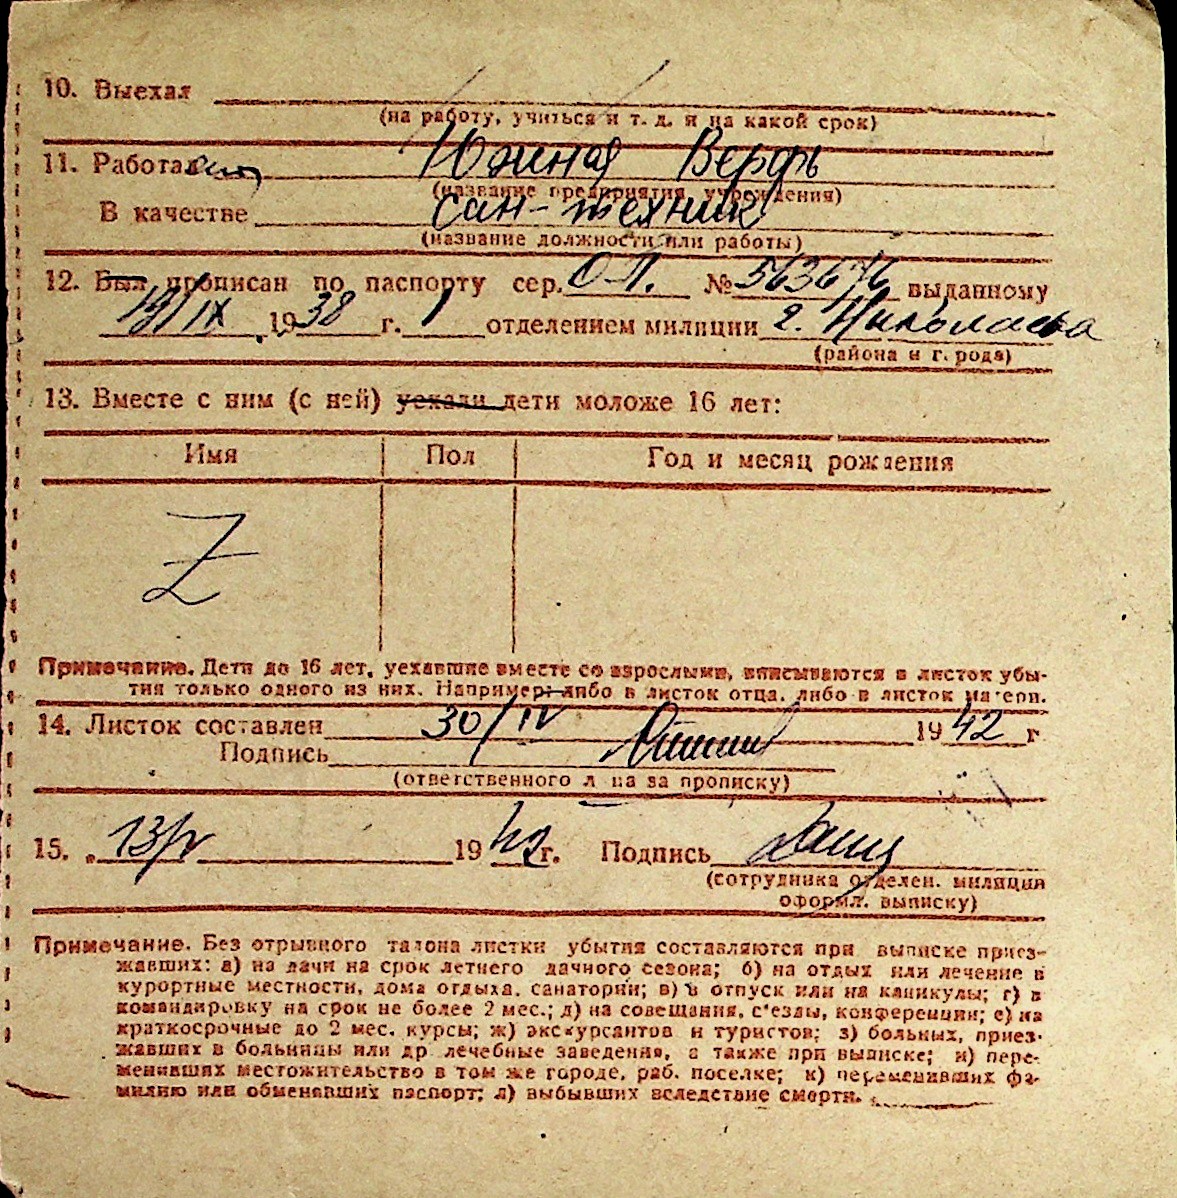 10. Выехал
(на работу, учиться и т. д. и на какой срок)
11. Работал Южная Верфь
(название предприятия, учреждения)
В качестве сан-техник
(название должности или работы)
12. Был прописан по паспорту сер. О-Л. № 563676 выданному
19/IX 1938 г. 1 отделением милиции г. Николаева
(района и г. рода)
13. Вместе с ним (с ней) уехали дети моложе 16 лет:
Имя Пол Год и месяц рождения
Z
Примечание. Дети до 16 лет, уехавшие вместе со взрослыми, вписываются в листок убы-
тия только одного из них. Например: либо в листок отца, либо в листок матери.
14. Листок составлен 30/IV 1942 г
Подпись
(ответственного л ца за прописку)
15. 13/V 1942 г. Подпись
(сотрудника отделен. милиции
оформл. выписку)
Примечание. Без отрывного талона листки убытия составляются при выписке приез-
жавших: а) на дачи на срок летнего дачного сезона; б) на отдых или лечение в
курортные местности, дома отдыха, санатории; в) в отпуск или на каникулы; г) в
командировку на срок не более 2 мес.; д) на совещания, с'езды, конференции; е) на
краткосрочные до 2 мес. курсы; ж) экскурсантов и туристов; з) больных, приез-
жавших в больницы или др лечебные заведения, а также при выписке; и) пере-
менивших местожительство в том же городе, раб. поселке; к) переменивших фа-
милию или обменявших паспорт; л) выбывших вследствие смерти.